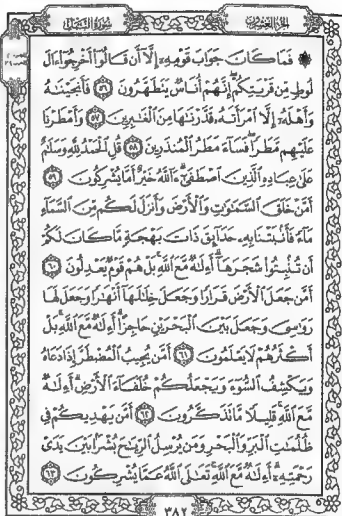 الجزء العشرون سورة النمل
فَمَا كَانَ جَوَابَ قَوْمِهِ إِلَّا أَن قَالُوا أَخْرِجُوا ءَالَ
لُوطٍ مِّن قَرْيَتِكُمْ إِنَّهُمْ أُنَاسٌ يَتَطَهَّرُونَ ٥٦ فَأَنجَيْنَٰهُ
وَأَهْلَهُ إِلَّا امْرَأَتَهُ قَدَّرْنَٰهَا مِنَ الْغَٰبِرِينَ ٥٧ وَأَمْطَرْنَا
عَلَيْهِم مَّطَرًا فَسَاءَ مَطَرُ الْمُنذَرِينَ ٥٨ قُلِ الْحَمْدُ لِلَّهِ وَسَلَٰمٌ
عَلَىٰ عِبَادِهِ الَّذِينَ اصْطَفَىٰ ءَاللَّهُ خَيْرٌ أَمَّا يُشْرِكُونَ ٥٩
أَمَّنْ خَلَقَ السَّمَٰوَٰتِ وَالْأَرْضَ وَأَنزَلَ لَكُم مِّنَ السَّمَاءِ
مَاءً فَأَنبَتْنَا بِهِ حَدَائِقَ ذَاتَ بَهْجَةٍ مَّا كَانَ لَكُمْ
أَن تُنبِتُوا شَجَرَهَا أَءِلَٰهٌ مَّعَ اللَّهِ بَلْ هُمْ قَوْمٌ يَعْدِلُونَ ٦٠
أَمَّن جَعَلَ الْأَرْضَ قَرَارًا وَجَعَلَ خِلَٰلَهَا أَنْهَٰرًا وَجَعَلَ لَهَا
رَوَٰسِيَ وَجَعَلَ بَيْنَ الْبَحْرَيْنِ حَاجِزًا أَءِلَٰهٌ مَّعَ اللَّهِ بَلْ
أَكْثَرُهُمْ لَا يَعْلَمُونَ ٦١ أَمَّن يُجِيبُ الْمُضْطَرَّ إِذَا دَعَاهُ
وَيَكْشِفُ السُّوءَ وَيَجْعَلُكُمْ خُلَفَاءَ الْأَرْضِ أَءِلَٰهٌ
مَّعَ اللَّهِ قَلِيلًا مَّا تَذَكَّرُونَ ٦٢ أَمَّن يَهْدِيكُمْ فِي
ظُلُمَٰتِ الْبَرِّ وَالْبَحْرِ وَمَن يُرْسِلُ الرِّيَٰحَ بُشْرًا بَيْنَ يَدَيْ
رَحْمَتِهِ أَءِلَٰهٌ مَّعَ اللَّهِ تَعَٰلَى اللَّهُ عَمَّا يُشْرِكُونَ ٦٣
٣٨٢